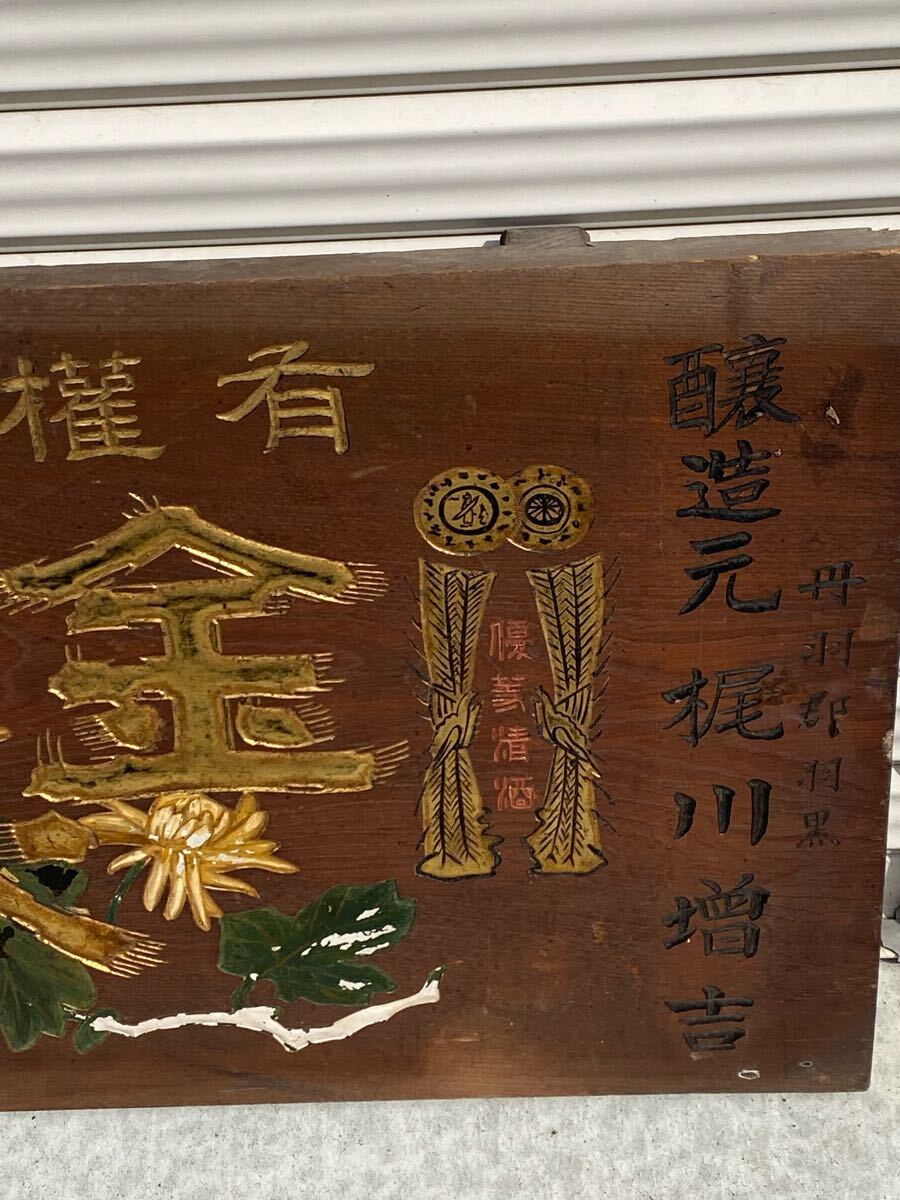 丹羽郡羽黒
釀造元 梶川增吉
優等清酒
有權
金